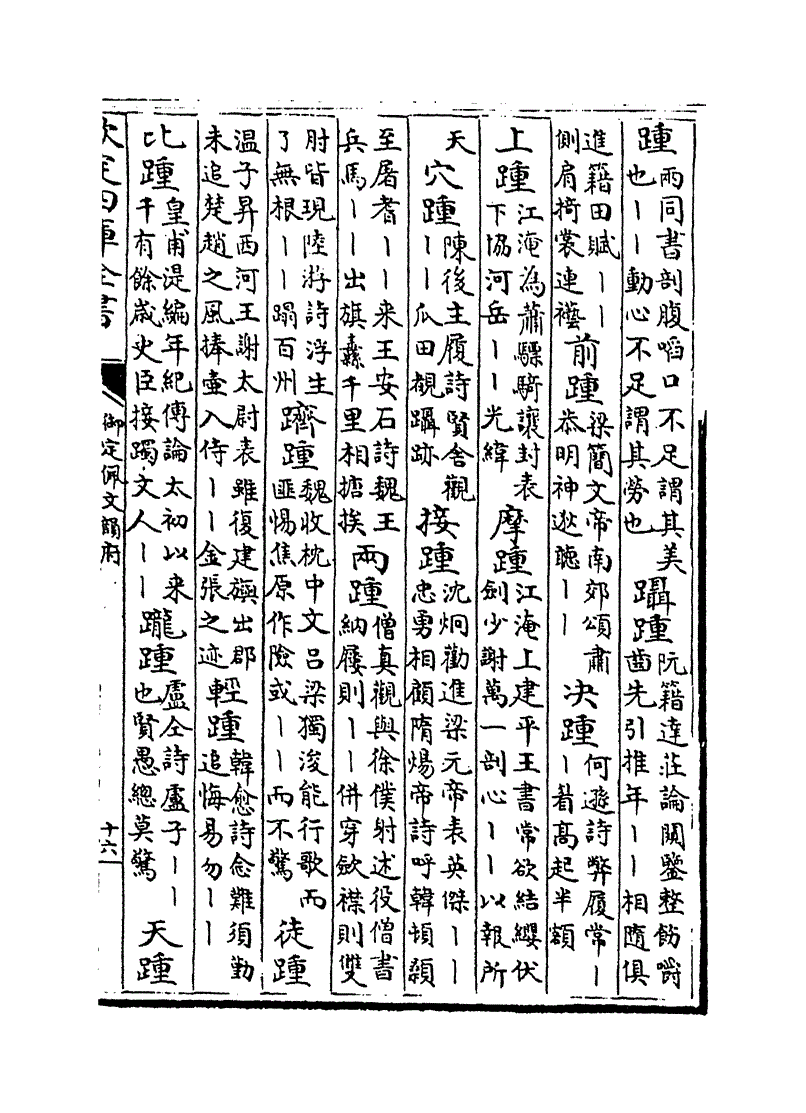 踵 兩同書剖腹㗖口不足謂其美也丨丨動心不足謂其勞也 躡踵 阮籍達莊論闗鑒整飭嚼齒先引推年丨丨相隨俱
進籍田賦丨丨側肩掎裳連襼 前踵 梁簡文帝南郊頌肅恭明神逖聼丨丨 决踵 何遜詩弊履常丨丨着髙起半額
上踵 江淹為蕭驃騎讓封表下協河岳丨丨光緯 摩踵 江淹上建平王書常欲結纓伏劍少謝萬一剖心丨丨以報所
天 穴踵 陳後主履詩賢舍觀丨丨瓜田覩躡跡 接踵 沈炯勸進梁元帝表英傑丨丨忠勇相顧隋煬帝詩呼韓頓顙
至屠耆丨丨来王安石詩魏王兵馬丨丨出旗纛千里相搪挨 兩踵 僧真觀與徐僕射述役僧書納屨則丨丨併穿歛襟則雙
肘皆現陸游詩浮生了無根丨丨蹋百州 躋踵 魏收枕中文吕梁獨浚能行歌而匪惕焦原作險或丨丨而不驚 徒踵
温子昇西河王謝太尉表雖復建旟出郡未追楚趙之風捧壷入侍丨丨金張之迹 輕踵 韓愈詩念難須勤追悔易勿丨丨
比踵 皇甫湜編年紀傳論太初以来千有餘歲史臣接躅文人丨丨 蹝踵 盧仝詩盧子丨丨也賢愚總莫驚 天踵
欽定四庫全書 御定佩文韻府 十六